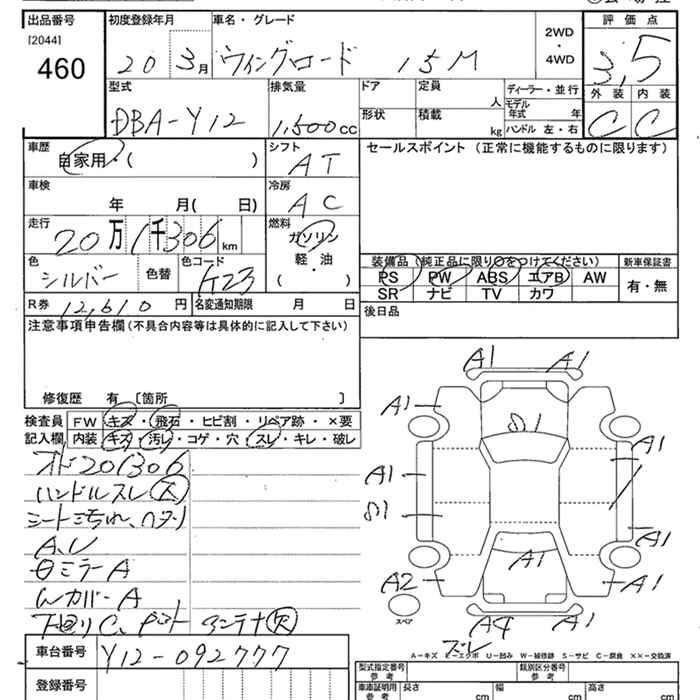 出品番号 初度登録年月 車名・グレード 2WD・4WD 評価点
[2044]
460
20 3月 ウィングロード 15M
3,5
型式 排気量 ドア 定員 人 ディーラー・並行 外装 内装
DBA-Y12 1,500cc 形状 積載 kg モデル年式 年 ハンドル 左・右 C C
車歴 シフト セールスポイント (正常に機能するものに限ります)
自家用・( ) AT
車検 冷房
年 月( 日) AC
走行 燃料
20万1千306km ガソリン
軽・油
色 色コード
シルバー 色替 K23 ( )
装備品(純正品に限り○をつけてください) 新車保証書
PS PW ABS エアB AW 有・無
SR ナビ TV カワ
R券 12,610円 名変通知期限 月 日 後日品
注意事項申告欄(不具合内容等は具体的に記入して下さい)
修復歴 有 [箇所 ]
検査員 FW キズ・飛石・ヒビ割・リペア跡・×要
記入欄 内装 キズ・汚レ・コゲ・穴・スレ・キレ・破レ
オド201306
ハンドルスレ(大)
シート汚れ、ヘタリ
A,U
日ミラーA
Wカバー A
下廻りC、 アンテナ欠
車台番号 Y12-092777
登録番号
A1 A1
A1 A1
A1 A1
A1 A1
A2 A1
スペア A4 A1
ズレ
A-キズ E-エクボ U-凹み W-補修跡 S-サビ C-腐食 ××-交換済
型式指定番号 参考 類別区分番号 参考
車庫証明用 参考 長さ cm 幅 cm 高さ cm